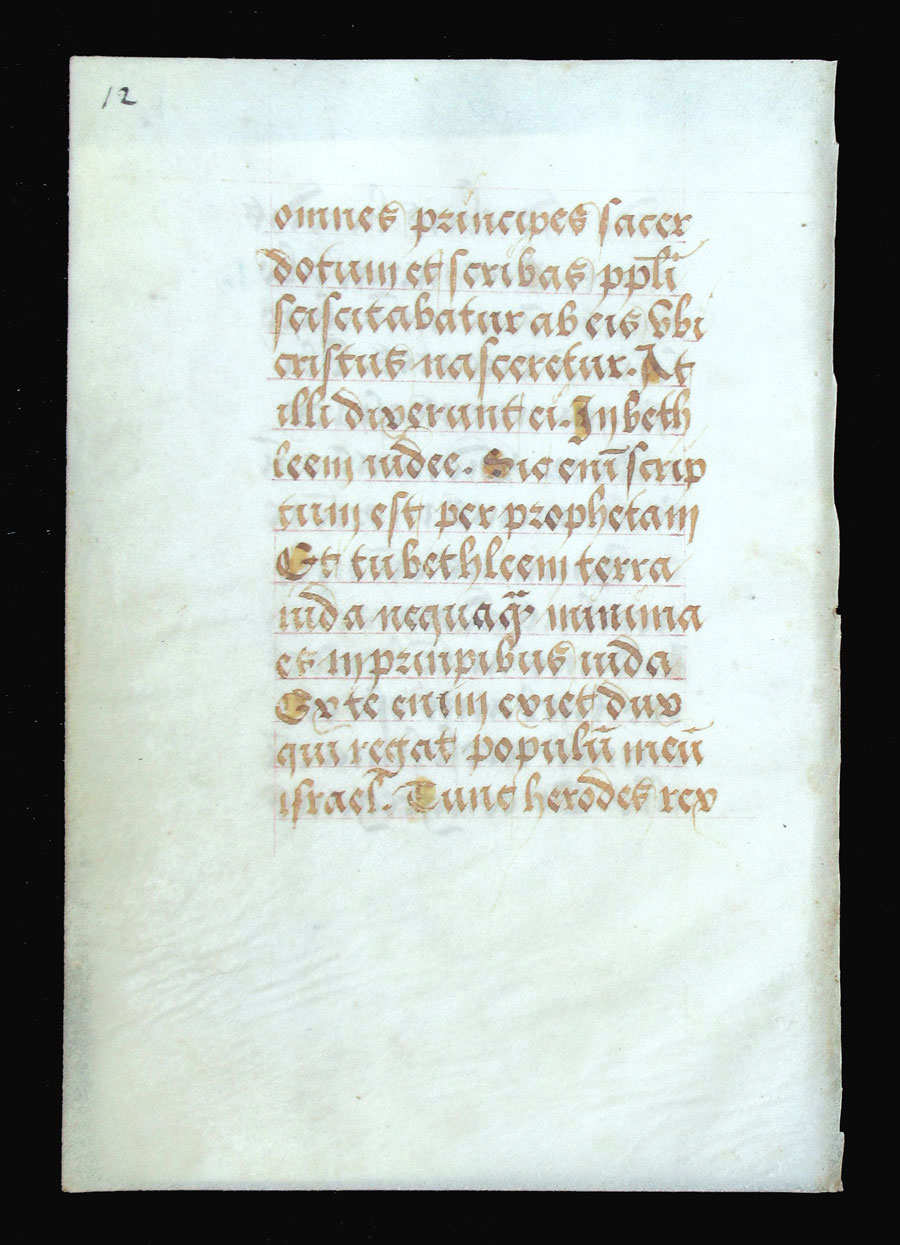 12
omnes principes sacer
dotum et scribas ppl̄i
sciscitabatur ab eis Vbi
cristus nasceretur. At
illi dixerunt ei. In beth
leem iudee. Sic enī scrip
tum est per prophetam
Et tu bethleem terra
iuda nequaq̄ minima
es in principibus iuda
Ex te enim exiet dux
qui regat populū meū
israel. Tunc herodes rex